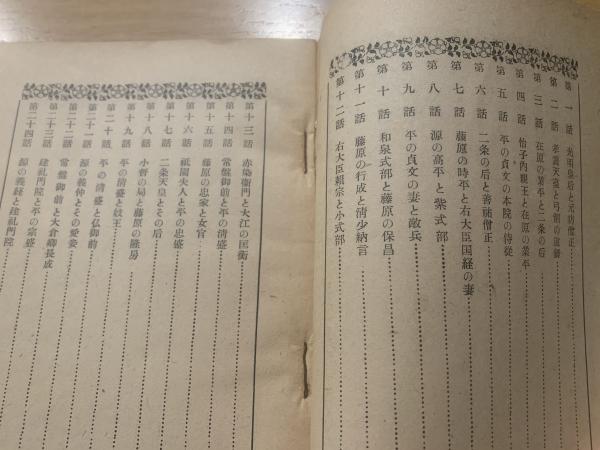 第一話 光明皇后と玄昉僧正
第二話 孝謙天皇と弓削の道鏡
第三話 在原の業平と二条の后
第四話 恬子内親王と在原の業平
第五話 平の貞文の本院の侍従
第六話 二条の后と善祐僧正
第七話 藤原の時平と右大臣国経の妻
第八話 源の高平と紫式部
第九話 平の貞文の妻と敵兵
第十話 和泉式部と藤原の保昌
第十一話 藤原の行成と清少納言
第十二話 右大臣頼宗と小式部
第十三話 赤染衛門と大江の匡衡
第十四話 常盤御前と平の清盛
第十五話 藤原の忠家と女官
第十六話 祇園夫人と平の忠盛
第十七話 二条天皇とその后
第十八話 小督の局と藤原の隆房
第十九話 平の清盛と妓王
第二十話 平の清盛と仏御前
第二十一話 源の義仲とその愛妾
第二十二話 常盤御前と大倉卿長成
第二十三話 建礼門院と平の宗盛
第二十四話 源の義経と建礼門院